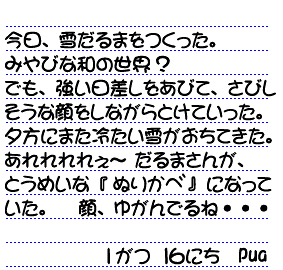 今日、雪だるまをつくった。
みやびな和の世界？
でも、強い日差しをあびて、さびし
そうな顔をしながらとけていった。
夕方にまた冷たい雪がおちてきた。
あれれれれぇ～ だるまさんが、
とうめいな『 ぬりかべ 』になって
いた。　顔、ゆがんでるね・・・
1がつ 16にち　Pua